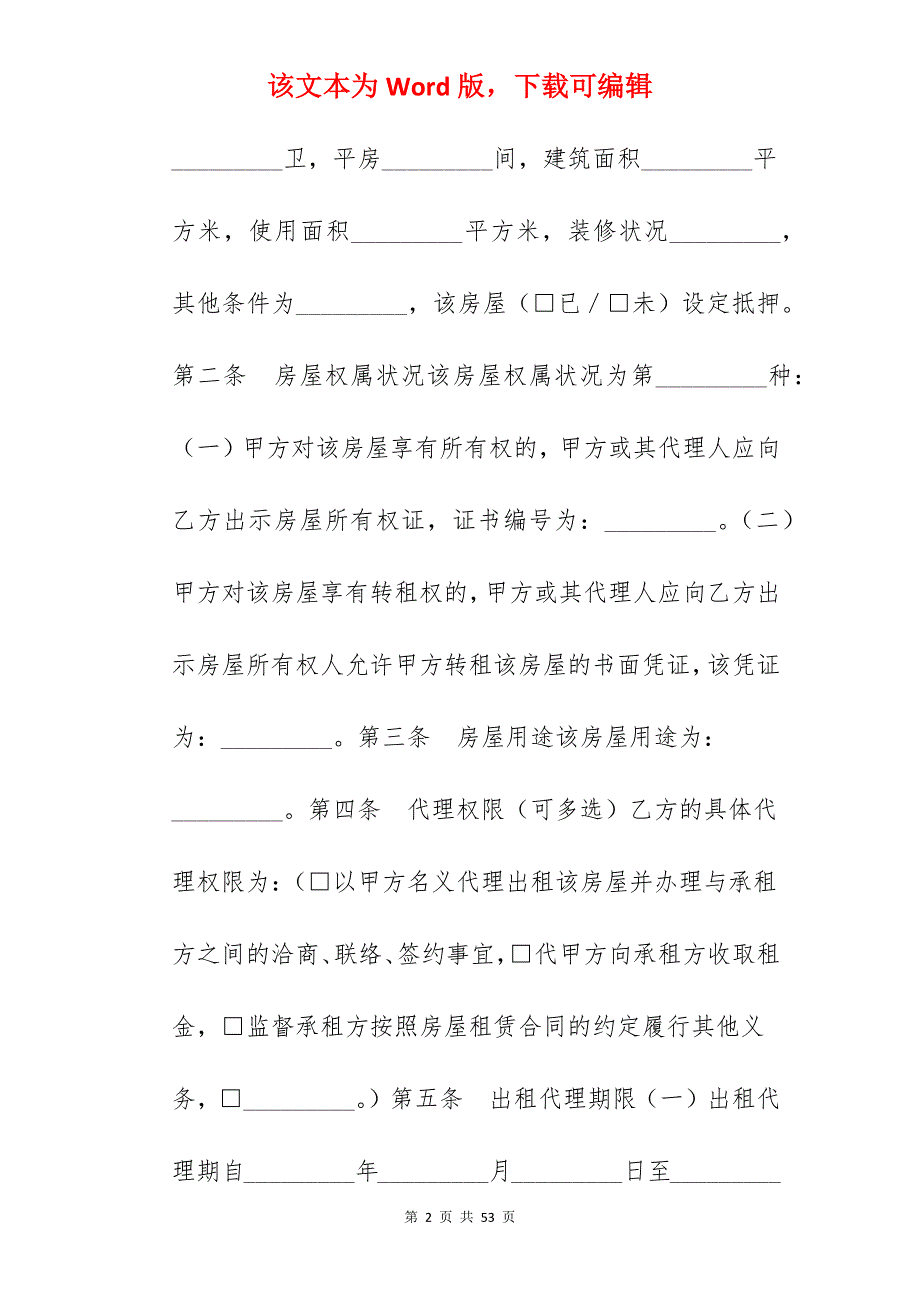 该文本为 Word 版，下载可编辑
_________卫，平房_________间，建筑面积_________平
方米，使用面积_________平方米，装修状况_________，
其他条件为_________，该房屋（□已／□未）设定抵押。
第二条　房屋权属状况该房屋权属状况为第_________种：
（一）甲方对该房屋享有所有权的，甲方或其代理人应向
乙方出示房屋所有权证，证书编号为：_________。（二）
甲方对该房屋享有转租权的，甲方或其代理人应向乙方出
示房屋所有权人允许甲方转租该房屋的书面凭证，该凭证
为：_________。第三条　房屋用途该房屋用途为：
_________。第四条　代理权限（可多选）乙方的具体代
理权限为：（□以甲方名义代理出租该房屋并办理与承租
方之间的洽商、联络、签约事宜，□代甲方向承租方收取租
金，□监督承租方按照房屋租赁合同的约定履行其他义
务，□_________。）第五条　出租代理期限（一）出租代
理期自_________年_________月_________日至_________
第 2 页 共 53 页